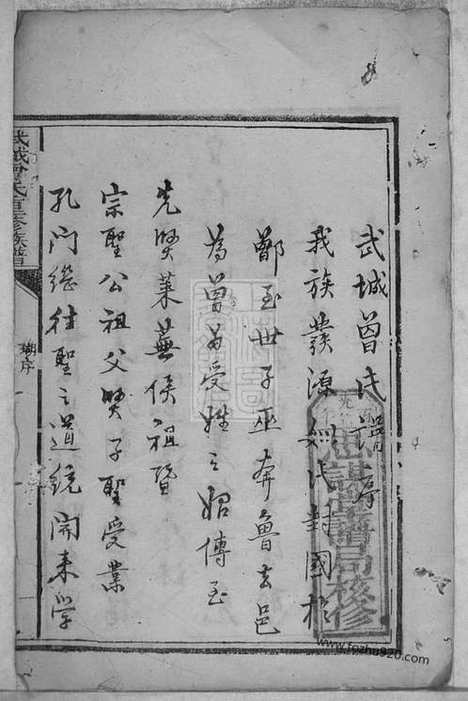 武城曾氏譜序
我族發源姒氏封國於
鄫至世子巫奔魯去邑
為曾為受姓之始傳至
先賢萊蕪侯祖暨
宗聖公祖父賢子聖受業
孔門繼往聖之道統開來學
武城曾氏重修族譜
序
譜局核修
www.fozhu920.com